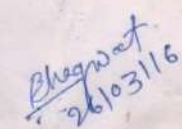 Bhagwat
26/03/16